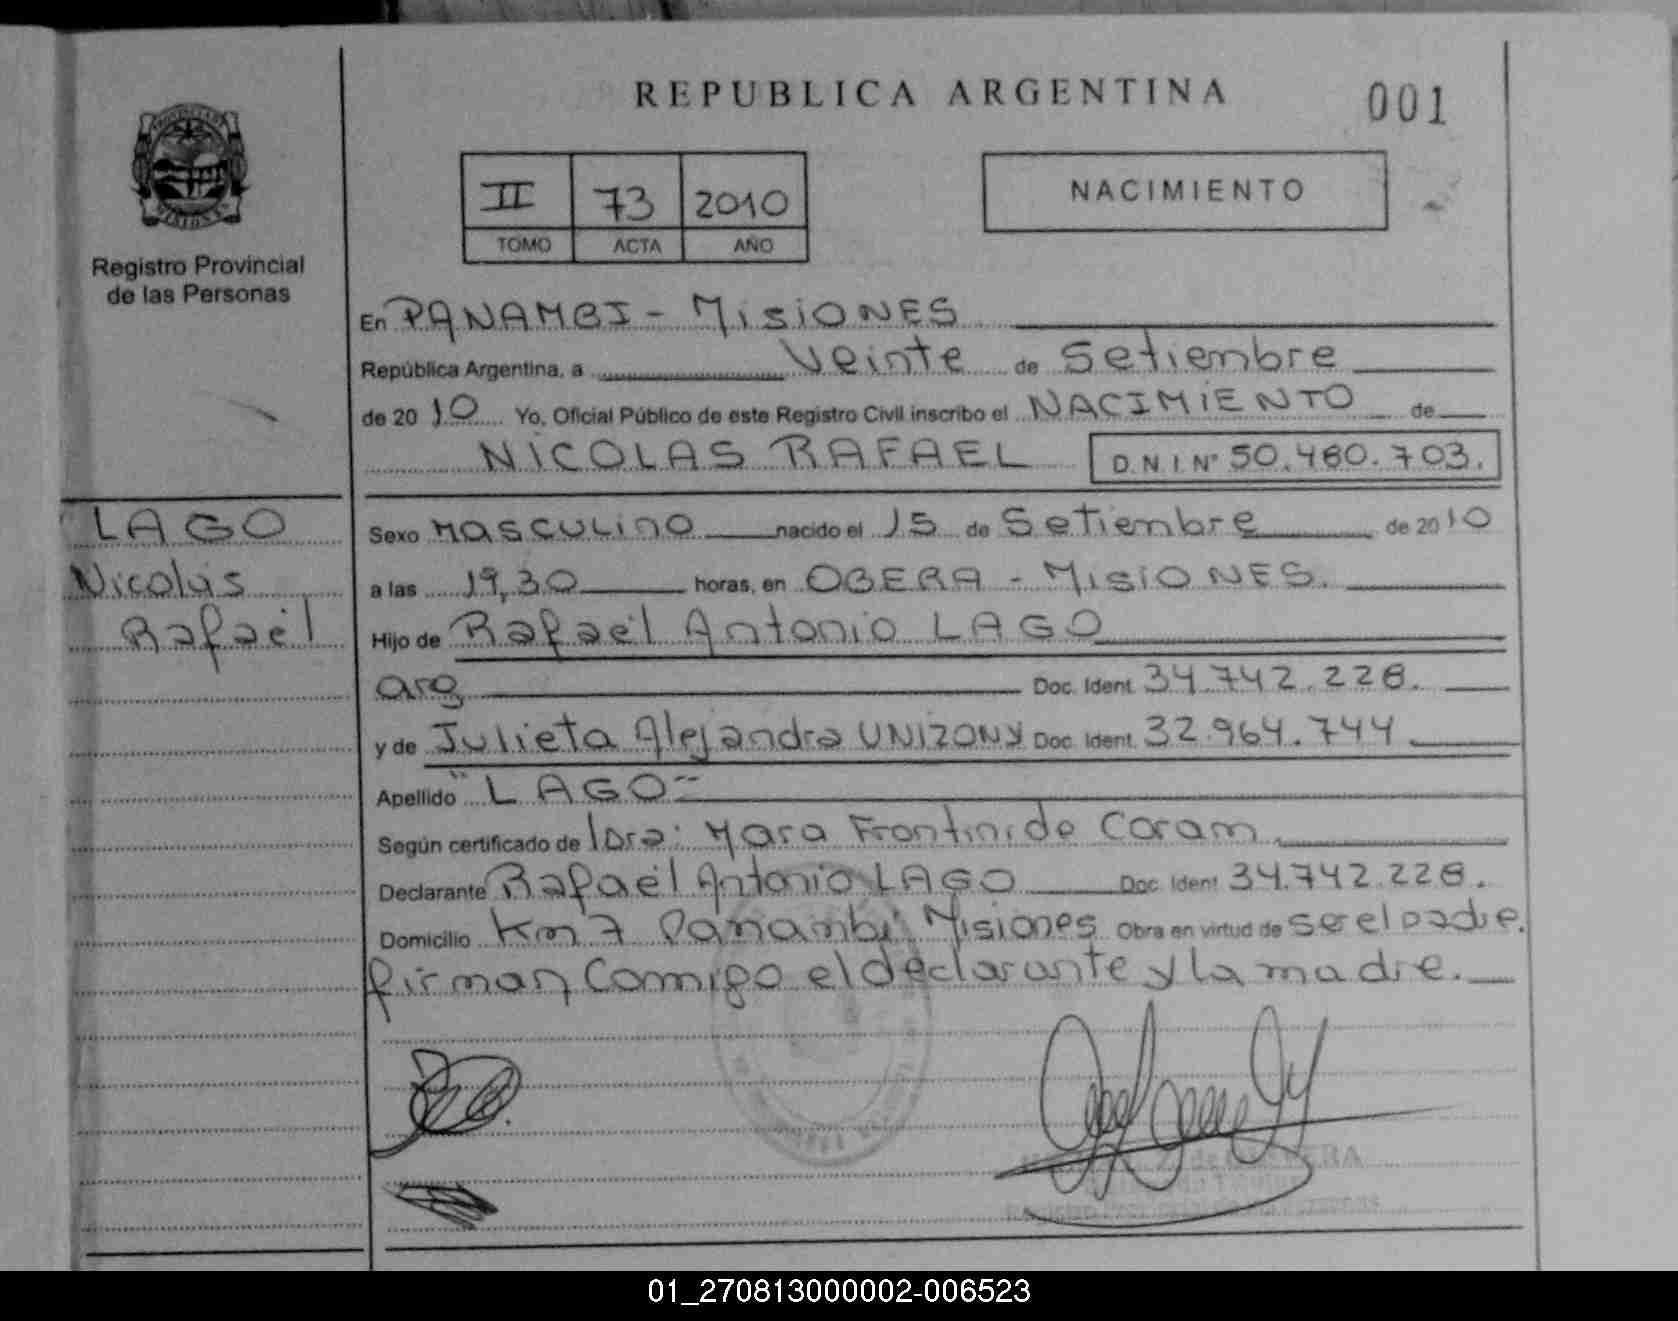 REPUBLICA ARGENTINA
001
PROVINCIA DE MISIONES
Registro Provincial
de las Personas
II 73 2010
TOMO ACTA AÑO
NACIMIENTO
En PANAMBI - MISIONES
República Argentina, a Veinte de Setiembre
de 2010 Yo, Oficial Público de este Registro Civil inscribo el NACIMIENTO de
NICOLAS RAFAEL D.N.I. Nº 50.460.703.
LAGO
Nicolás
Rafaël
Sexo Masculino nacido el 15 de Setiembre de 2010
a las 19,30 horas, en OBERA - MISIONES.
Hijo de Rafaël Antonio LAGO
arg Doc. Ident. 34.742.228.
y de Julieta Alejandra UNIZONY Doc. Ident. 32.964.744
Apellido "LAGO"
Según certificado de Dra: Mara Frontini de Caram
Declarante Rafaël Antonio LAGO Doc. Ident 34.742.228.
Domicilio Km 7 Panambi Misiones Obra en virtud de ser el padre.
firman Conmigo el declarante y la madre.
01_270813000002-006523